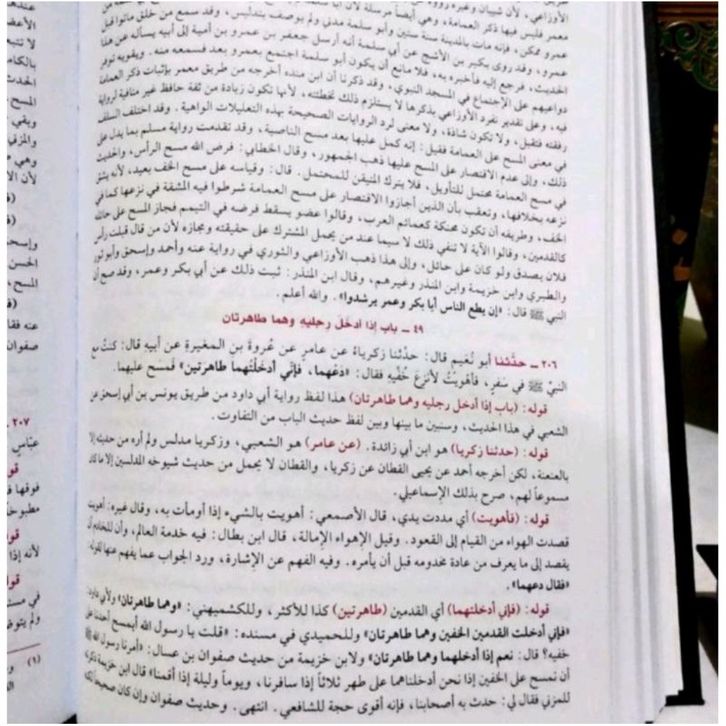 الأوزاعي، لأن شيبان وغيره رووه
معمر فليس فيها ذكر العمامة، وهي أيضاً مرسلة لأن أبا
عمرو ممكن، فإنه مات بالمدينة سنة ستين وأبو سلمة مدني ولم يوصف بتدليس، وقد سمع من خلق ماتوا قبل
عمرو، وقد روى بكير بن الأشج عن أبي سلمة أنه أرسل جعفر بن عمرو بن أمية إلى أبيه يسأله عن هذا
الحديث، فرجع إليه فأخبره به، فلا مانع أن يكون أبو سلمة اجتمع بعمرو بعد فسمعه منه. ويقويه توفر
دواعيهم على الاجتماع في المسجد النبوي، وقد ذكرنا أن ابن منده أخرجه من طريق معمر بإثبات ذكر العمامة
فيه، وعلى تقدير تفرد الأوزاعي بذكرها لا يستلزم ذلك تخطئته، لأنها تكون زيادة من ثقة حافظ غير منافية لرواية
رفقته فتقبل، ولا تكون شاذة، ولا معنى لرد الروايات الصحيحة بهذه التعليلات الواهية. وقد اختلف السلف
في معنى المسح على العمامة فقيل: إنه كمل عليها بعد مسح الناصية، وقد تقدمت رواية مسلم بما يدل على
ذلك، وإلى عدم الاقتصار على المسح عليها ذهب الجمهور، وقال الخطابي: فرض الله مسح الرأس، والحديث
في مسح العمامة محتمل للتأويل، فلا يترك المتيقن للمحتمل. قال: وقياسه على مسح الخف بعيد، لأنه يشق
نزعه بخلافها، وتعقب بأن الذين أجازوا الاقتصار على مسح العمامة شرطوا فيه المشقة في نزعها كما في
الخف، وطريقه أن تكون محنكة كعمائم العرب، وقالوا عضو يسقط فرضه في التيمم فجاز المسح على حائله
كالقدمين، وقالوا الآية لا تنفي ذلك لا سيما عند من يحمل المشترك على حقيقته ومجازه لأن من قال قبلت رأس
فلان يصدق ولو كان على حائل، وإلى هذا ذهب الأوزاعي والثوري في رواية عنه وأحمد وإسحق وأبو ثور
والطبري وابن خزيمة وابن المنذر وغيرهم، وقال ابن المنذر: ثبت ذلك عن أبي بكر وعمر، وقد صح أن
النبي ﷺ قال: «إن يطع الناس أبا بكر وعمر يرشدوا». والله أعلم.
٤٩ ـ باب إذا أدخل رجليه وهما طاهرتان
٢٠٦ ـ حدّثنا أبو نُعَيم قال: حدّثنا زكرياءُ عن عامرٍ عن عُروةَ بنِ المغيرةِ عن أبيهِ قال: كنتُ مع
النبيّ ﷺ في سَفرٍ، فأهويتُ لأنزِعَ خُفَّيهِ فقال: «دَعْهما، فإنِّي أدخلتُهما طاهرتَين» فمسَح عليهما.
قوله: (باب إذا أدخل رجليه وهما طاهرتان) هذا لفظ رواية أبي داود من طريق يونس بن أبي إسحق عن
الشعبي في هذا الحديث، وسنبين ما بينها وبين لفظ حديث الباب من التفاوت.
قوله: (حدثنا زكريا) هو ابن أبي زائدة. (عن عامر) هو الشعبي، وزكريا مدلس ولم أره من حديثه إلا
بالعنعنة، لكن أخرجه أحمد عن يحيى القطان عن زكريا، والقطان لا يحمل من حديث شيوخه المدلسين إلا ما كان
مسموعاً لهم، صرح بذلك الإسماعيلي.
قوله: (فأهويت) أي مددت يدي، قال الأصمعي: أهويت بالشيء إذا أومأت به، وقال غيره: أهويت
قصدت الهواء من القيام إلى القعود. وقيل الإهواء الإمالة، قال ابن بطال: فيه خدمة العالم، وأن للخادم أن
يقصد إلى ما يعرف من عادة مخدومه قبل أن يأمره. وفيه الفهم عن الإشارة، ورد الجواب عما يفهم عنها لقوله:
«فقال دعهما».
قوله: (فإني أدخلتهما) أي القدمين (طاهرتين) كذا للأكثر، وللكشميهني: «وهما طاهرتان» ولأبي داود:
«فإني أدخلت القدمين الخفين وهما طاهرتان» وللحميدي في مسنده: «قلت يا رسول الله أيمسح أحدنا على
خفيه؟ قال: نعم إذا أدخلهما وهما طاهرتان» ولابن خزيمة من حديث صفوان بن عسال: «أمرنا رسول الله ﷺ
أن نمسح على الخفين إذا نحن أدخلناهما على طهر ثلاثاً إذا سافرنا، ويوماً وليلة إذا أقمنا» قال ابن خزيمة ذكرته
للمزني فقال لي: حدث به أصحابنا، فإنه أقوى حجة للشافعي. انتهى. وحديث صفوان وإن كان صحيحاً لكنه